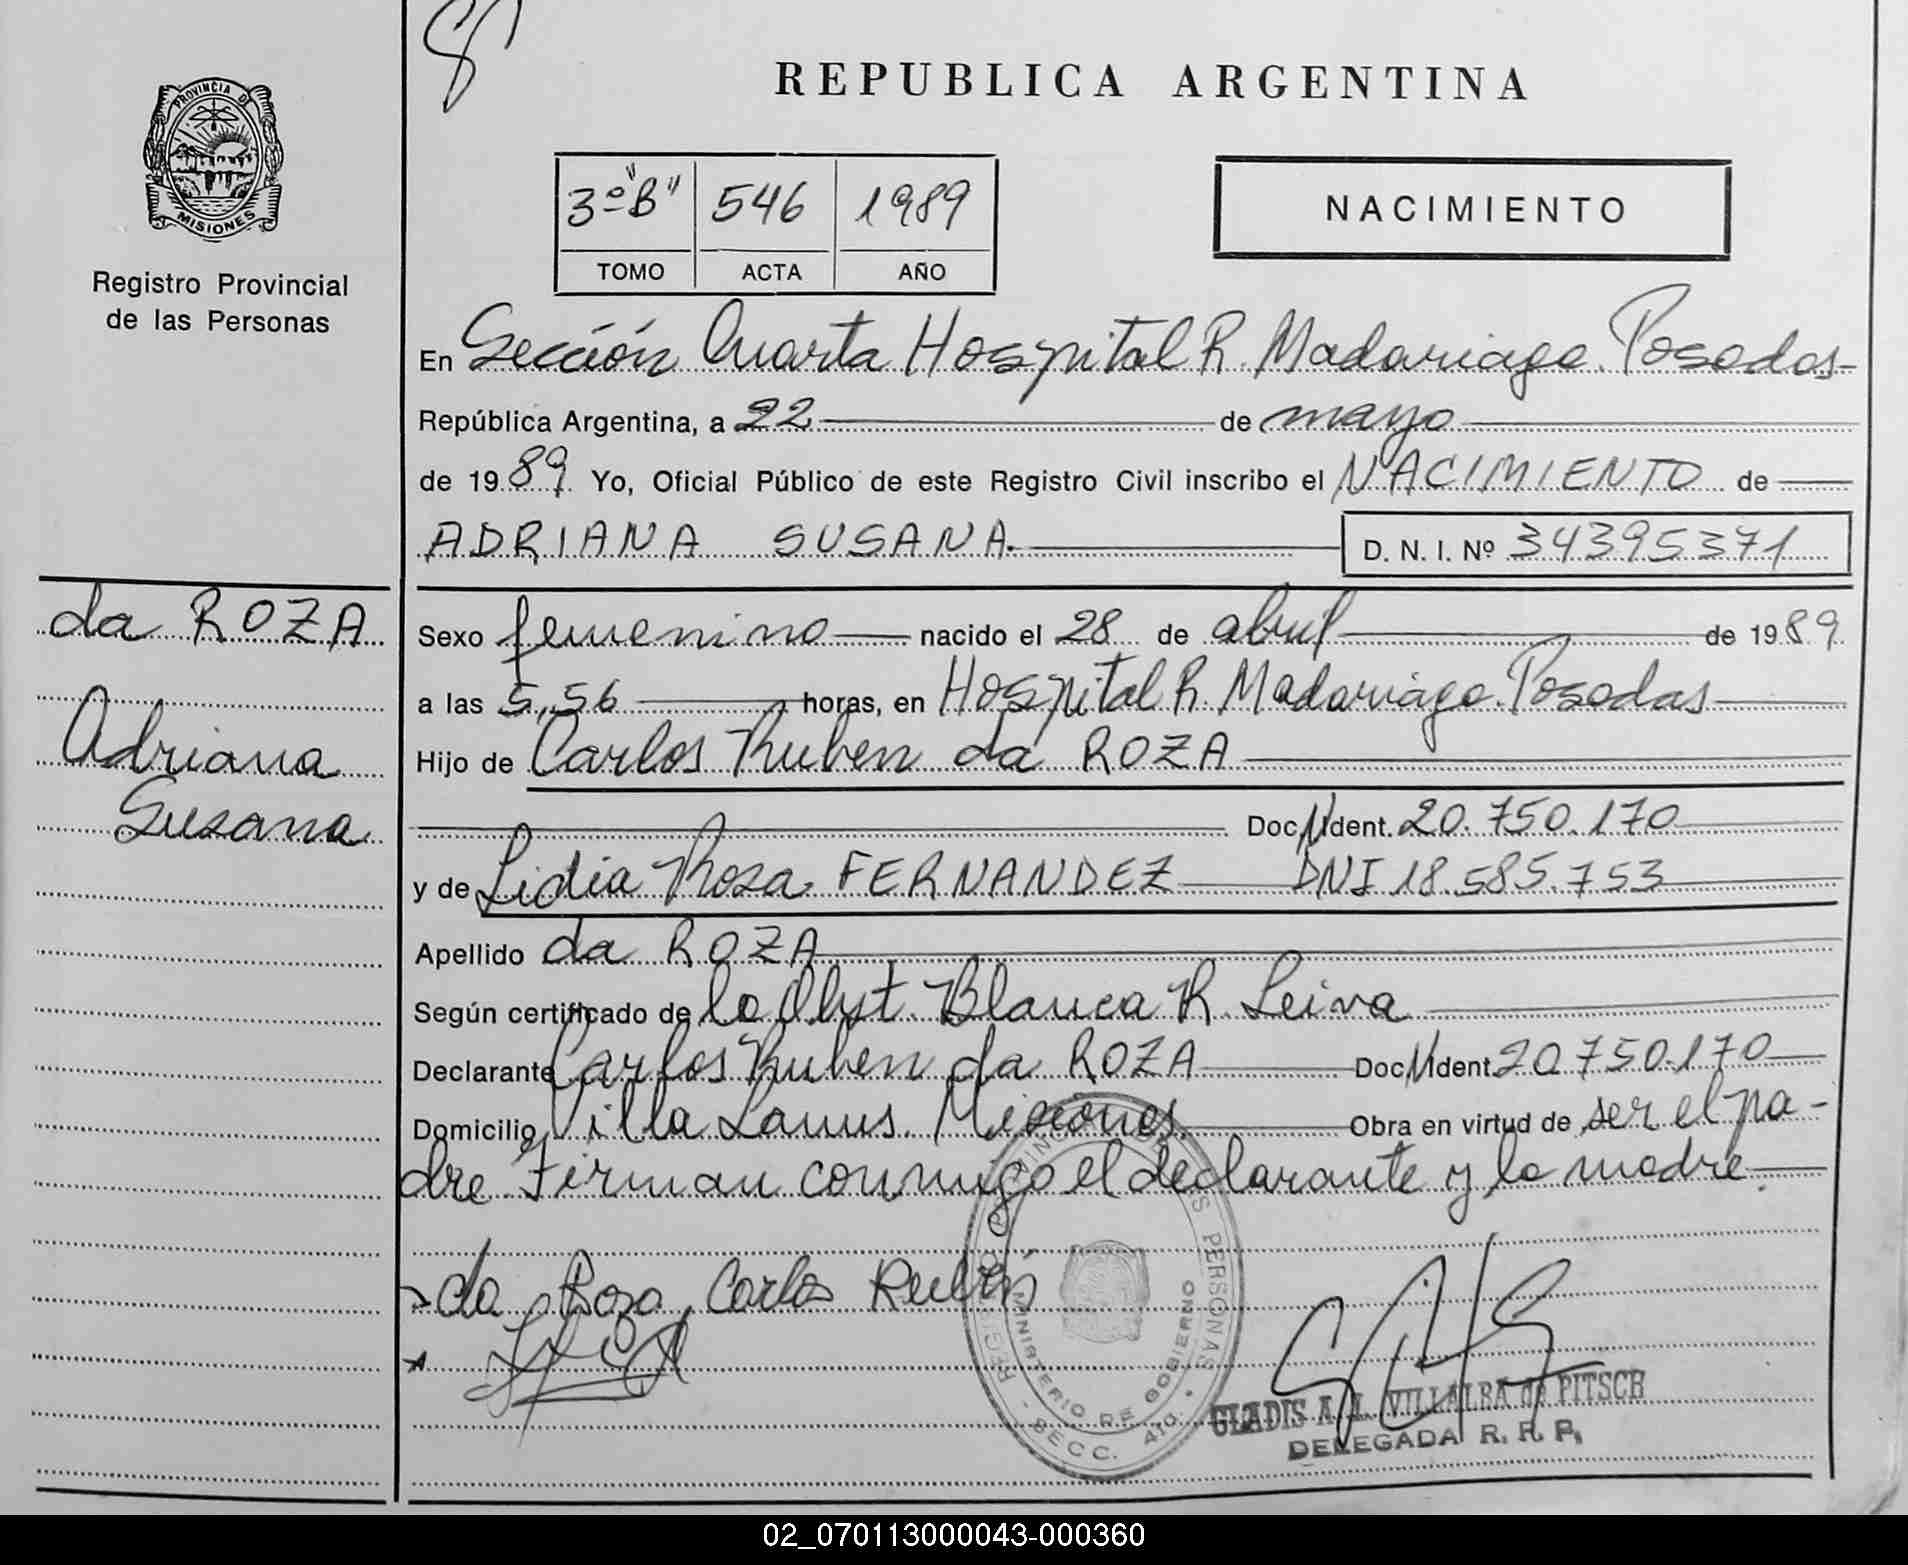 REPUBLICA ARGENTINA
PROVINCIA DE
MISIONES
Registro Provincial
de las Personas
3º "B" 546 1989
TOMO ACTA AÑO
NACIMIENTO
En Sección Cuarta Hospital R. Madariaga. Posadas
República Argentina, a 22 de mayo
de 1989 Yo, Oficial Público de este Registro Civil inscribo el NACIMIENTO de
ADRIANA SUSANA. D. N. I. Nº 34395371
da ROZA
Adriana
Susana
Sexo femenino nacido el 28 de abril de 1989
a las 5,56 horas, en Hospital R. Madariaga. Posadas
Hijo de Carlos Ruben da ROZA
Doc. Ident. 20.750.170
y de Lidia Rosa FERNANDEZ DNI 18.585.753
Apellido da ROZA
Según certificado de la Obst. Blanca R. Leiva
Declarante Carlos Ruben da ROZA Doc. Ident. 20.750.170
Domicilio Villa Lanus. Misiones. Obra en virtud de ser el pa-
dre. Firman conmigo el declarante y la madre.
da Roza, Carlos Rubén
MINISTERIO DE GOBIERNO
PERSONAS
SECC. 4TO.
GLADIS A. VILLALBA de PITSCH
DELEGADA R. R. P.
02_070113000043-000360